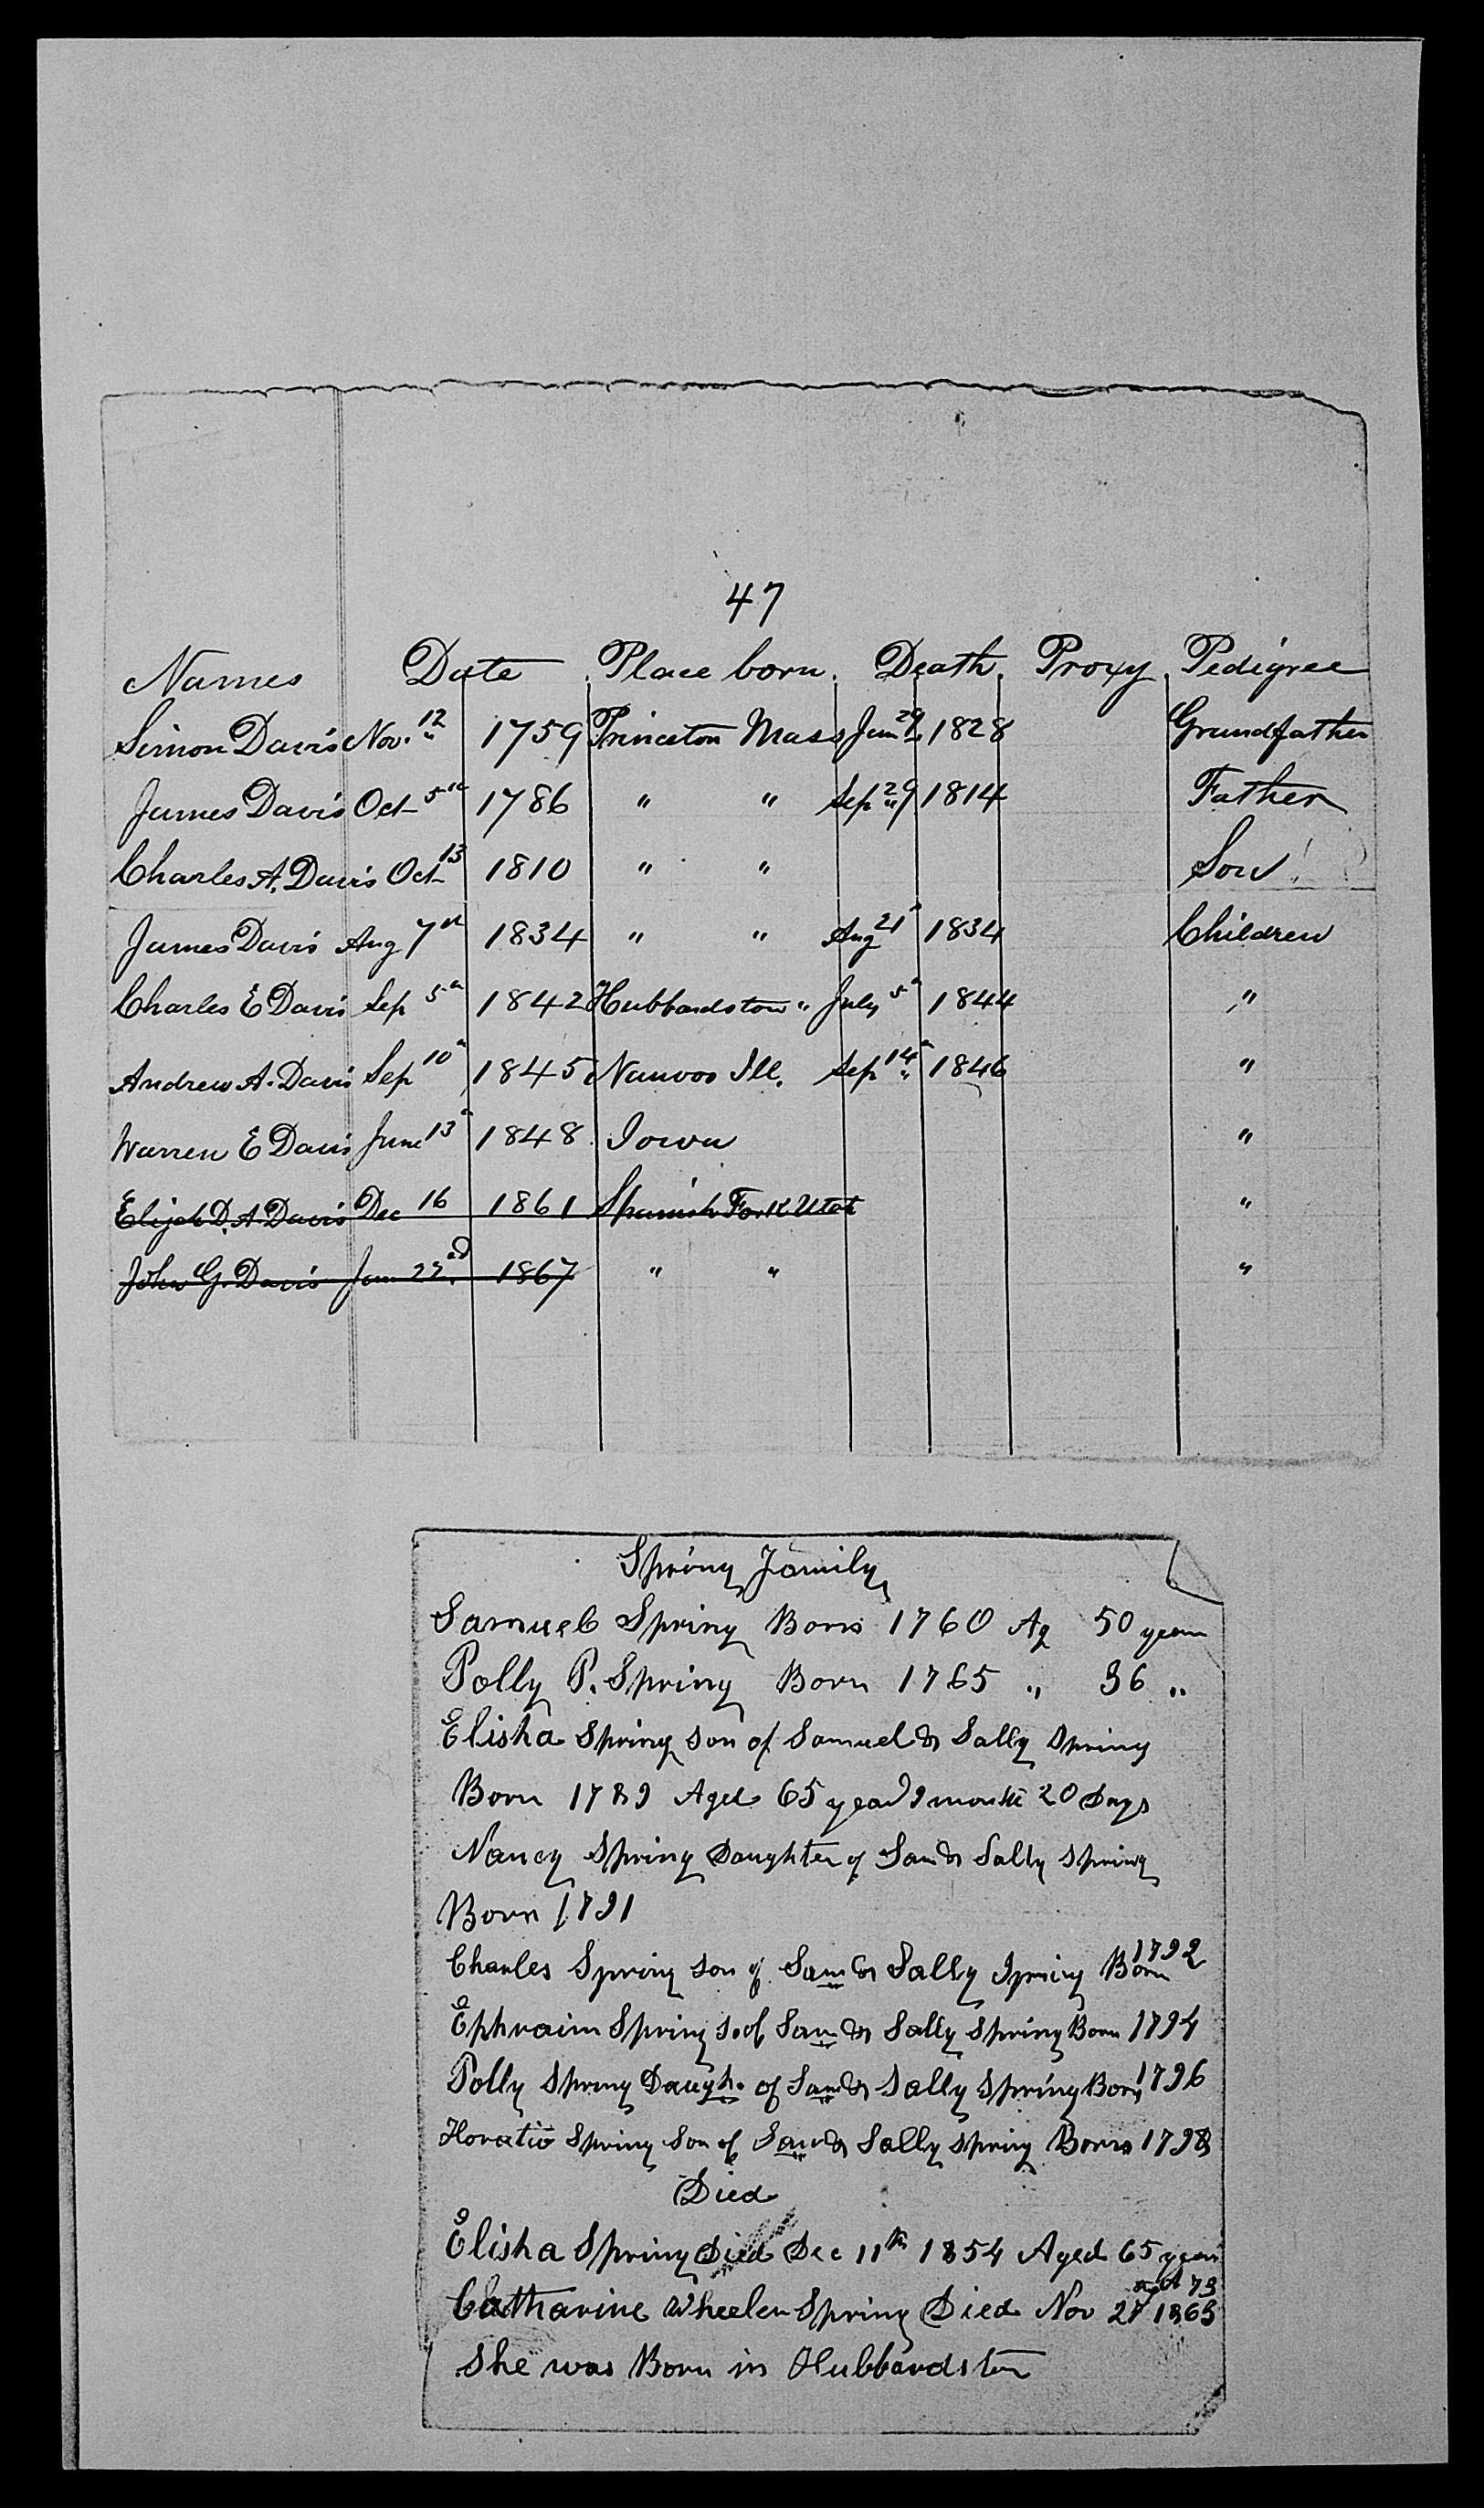 47
Names Date Place born. Death. Proxy. Pedigree
Simon Davis Nov. 12" 1759 Princeton Mass Jun 29 1828 Grandfather
James Davis Oct 5th 1786 " " Sep 29 1814 Father
Charles A. Davis Oct 13 1810 " " Son
James Davis Aug 7th 1834 " " Aug 21 1834 Children
Charles E Davis Sep 5th 1842 Hubbardston " July 5th 1844 "
Andrew A. Davis Sep 10th 1845 Nauvoo Ill. Sep 14th 1846 "
Warren E Davis June 13th 1848 Iowa "
Elijah D. A. Davis Dec 16 1861 Spanish Fork Utah "
John G. Davis Jan 22nd 1867 " " "
Spring Family
Samuel Spring Born 1760 Ag 50 years
Polly P. Spring Born 1765 " 36 "
Elisha Spring son of Samuel & Sally Spring
Born 1789 Aged 65 year 9 month 20 Days
Nancy Spring Daughter of Sam & Sally Spring
Born 1791
Charles Spring son of Sam & Sally Spring Born 1792
Ephraim Spring S. of Sam & Sally Spring Born 1794
Polly Spring Daugh. of Sam & Sally Spring Born 1796
Horatio Spring Son of Sam & Sally Spring Born 1798
Died
Elisha Spring Died Dec 11th 1854 Aged 65 years
Catharine Wheeler Spring Died Nov 27 1865 a d 73
She was Born in Hubbardston